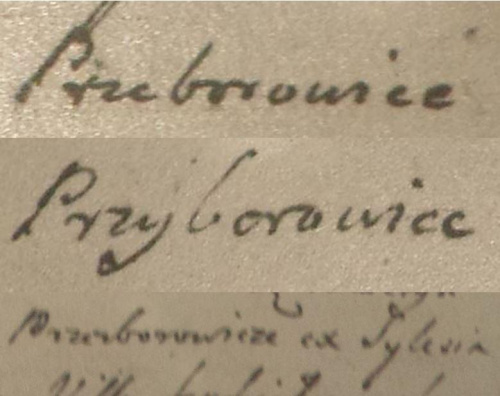 Przeborowice
Przyborowice
Przerborowicze ex Sylesia